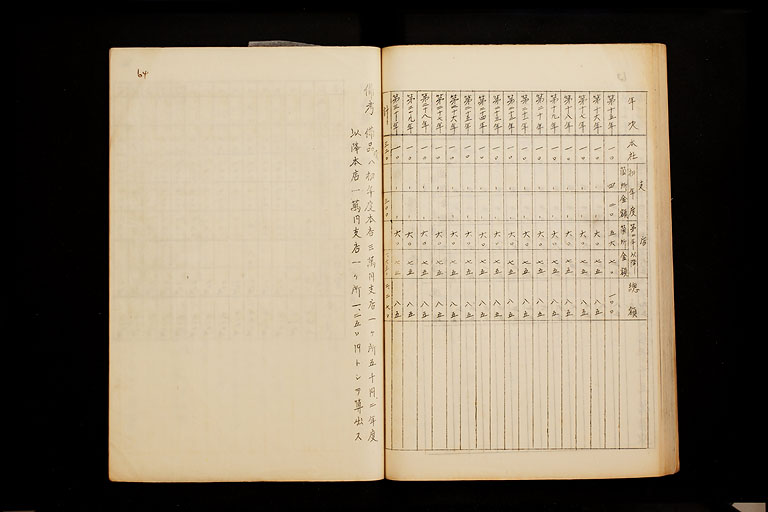 年次
本社
支店
初年度
箇所
金額
第二年以降
箇所
金額
總額
第十五年 一〇 四 二〇 五六 七〇 一〇〇
第十六年 一〇 六〇 七五 八五
第十七年 一〇 六〇 七五 八五
第十八年 一〇 六〇 七五 八五
第十九年 一〇 六〇 七五 八五
第二十年 一〇 六〇 七五 八五
第二十一年 一〇 六〇 七五 八五
第二十二年 一〇 六〇 七五 八五
第二十三年 一〇 六〇 七五 八五
第二十四年 一〇 六〇 七五 八五
第二十五年 一〇 六〇 七五 八五
第二十六年 一〇 六〇 七五 八五
第二十七年 一〇 六〇 七五 八五
第二十八年 一〇 六〇 七五 八五
第二十九年 一〇 六〇 七五 八五
第三十年 一〇 六〇 七五 八五
計
備考 備品ハ初年度本店三萬円支店一ヶ所五千円、二年度
以降本店一萬円支店一ヶ所一、二五〇円トシテ算出ス
64